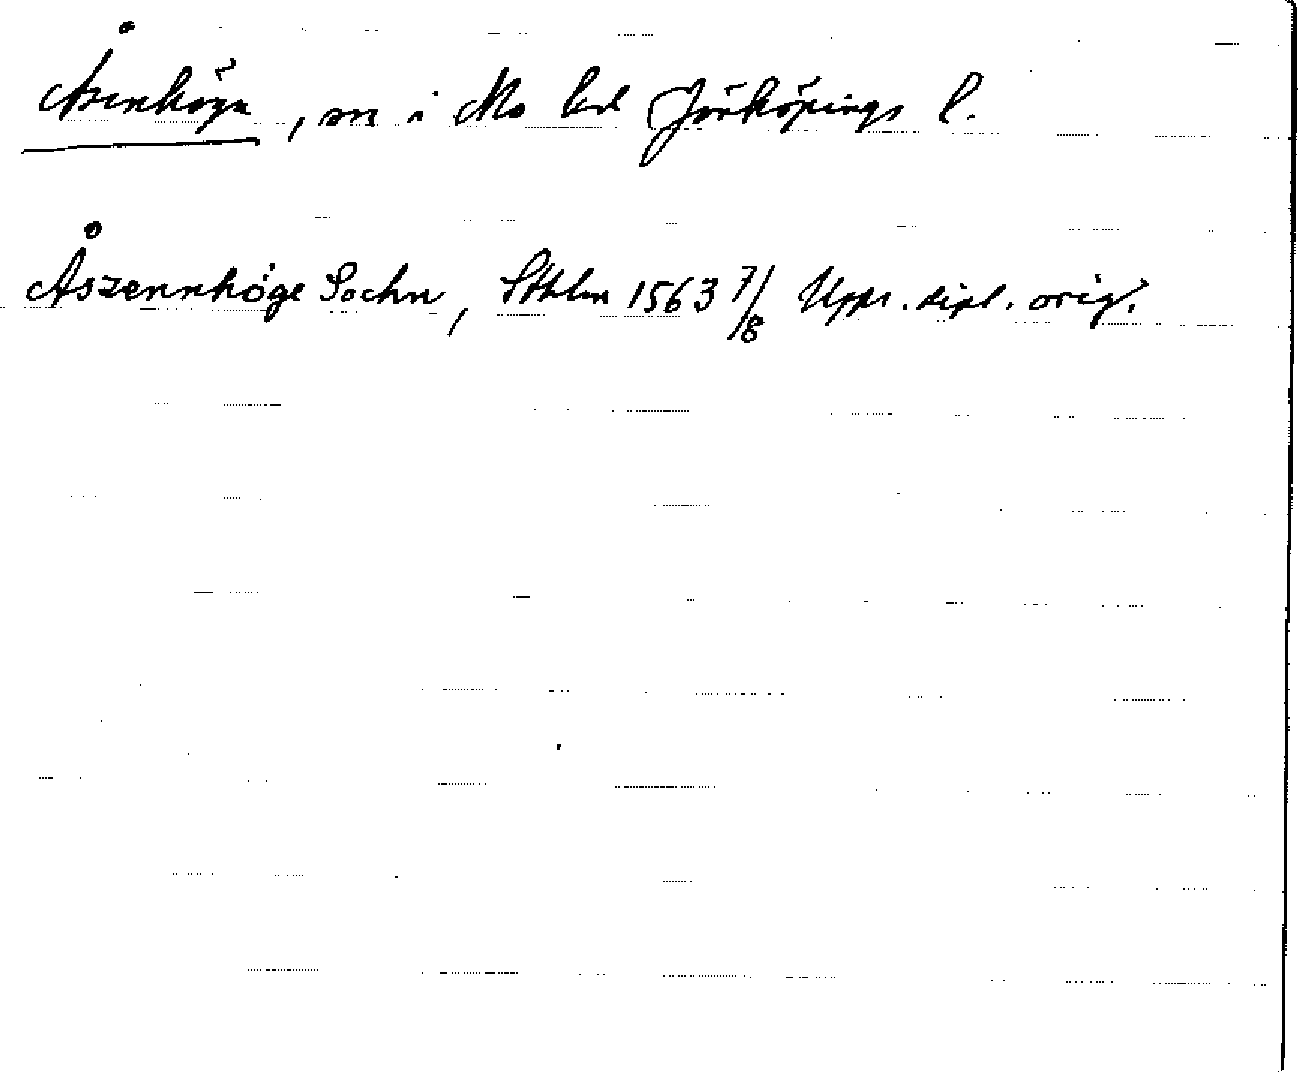 Åsenhöga, sn i Mo hd Jönköpings l.
Åszennhöge Sochn, Sthlm 1563 7/8 Upps. dipl. orig.